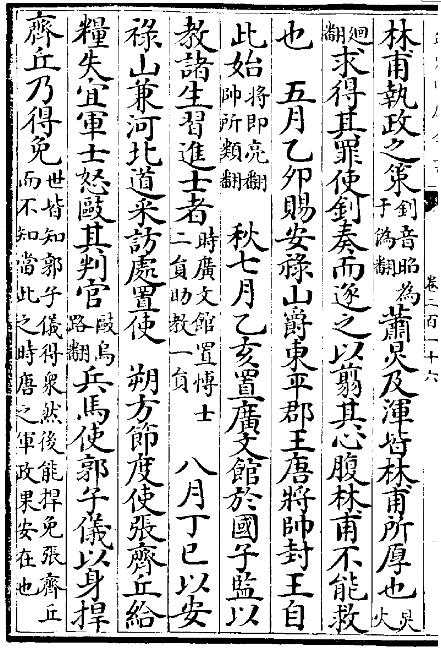 林甫執政之策釗音昭為于偽翻蕭炅及渾皆林甫所厚也炅火
迥翻求得其罪使釗奏而逐之以翦其心腹林甫不能救
也　五月乙卯賜安祿山爵東平郡王唐將帥封王自
此始將即亮翻帥所類翻　秋七月乙亥置廣文館於國子監以
教諸生習進士者時廣文館置博士二員助教一員　八月丁巳以安
祿山兼河北道采訪處置使　朔方節度使張齊丘給
糧失宜軍士怒毆其判官毆烏路翻兵馬使郭子儀以身捍
齊丘乃得免世皆知郭子儀得衆然後能捍免張齊丘而不知當此之時唐之軍政果安在也
卷二百一十六